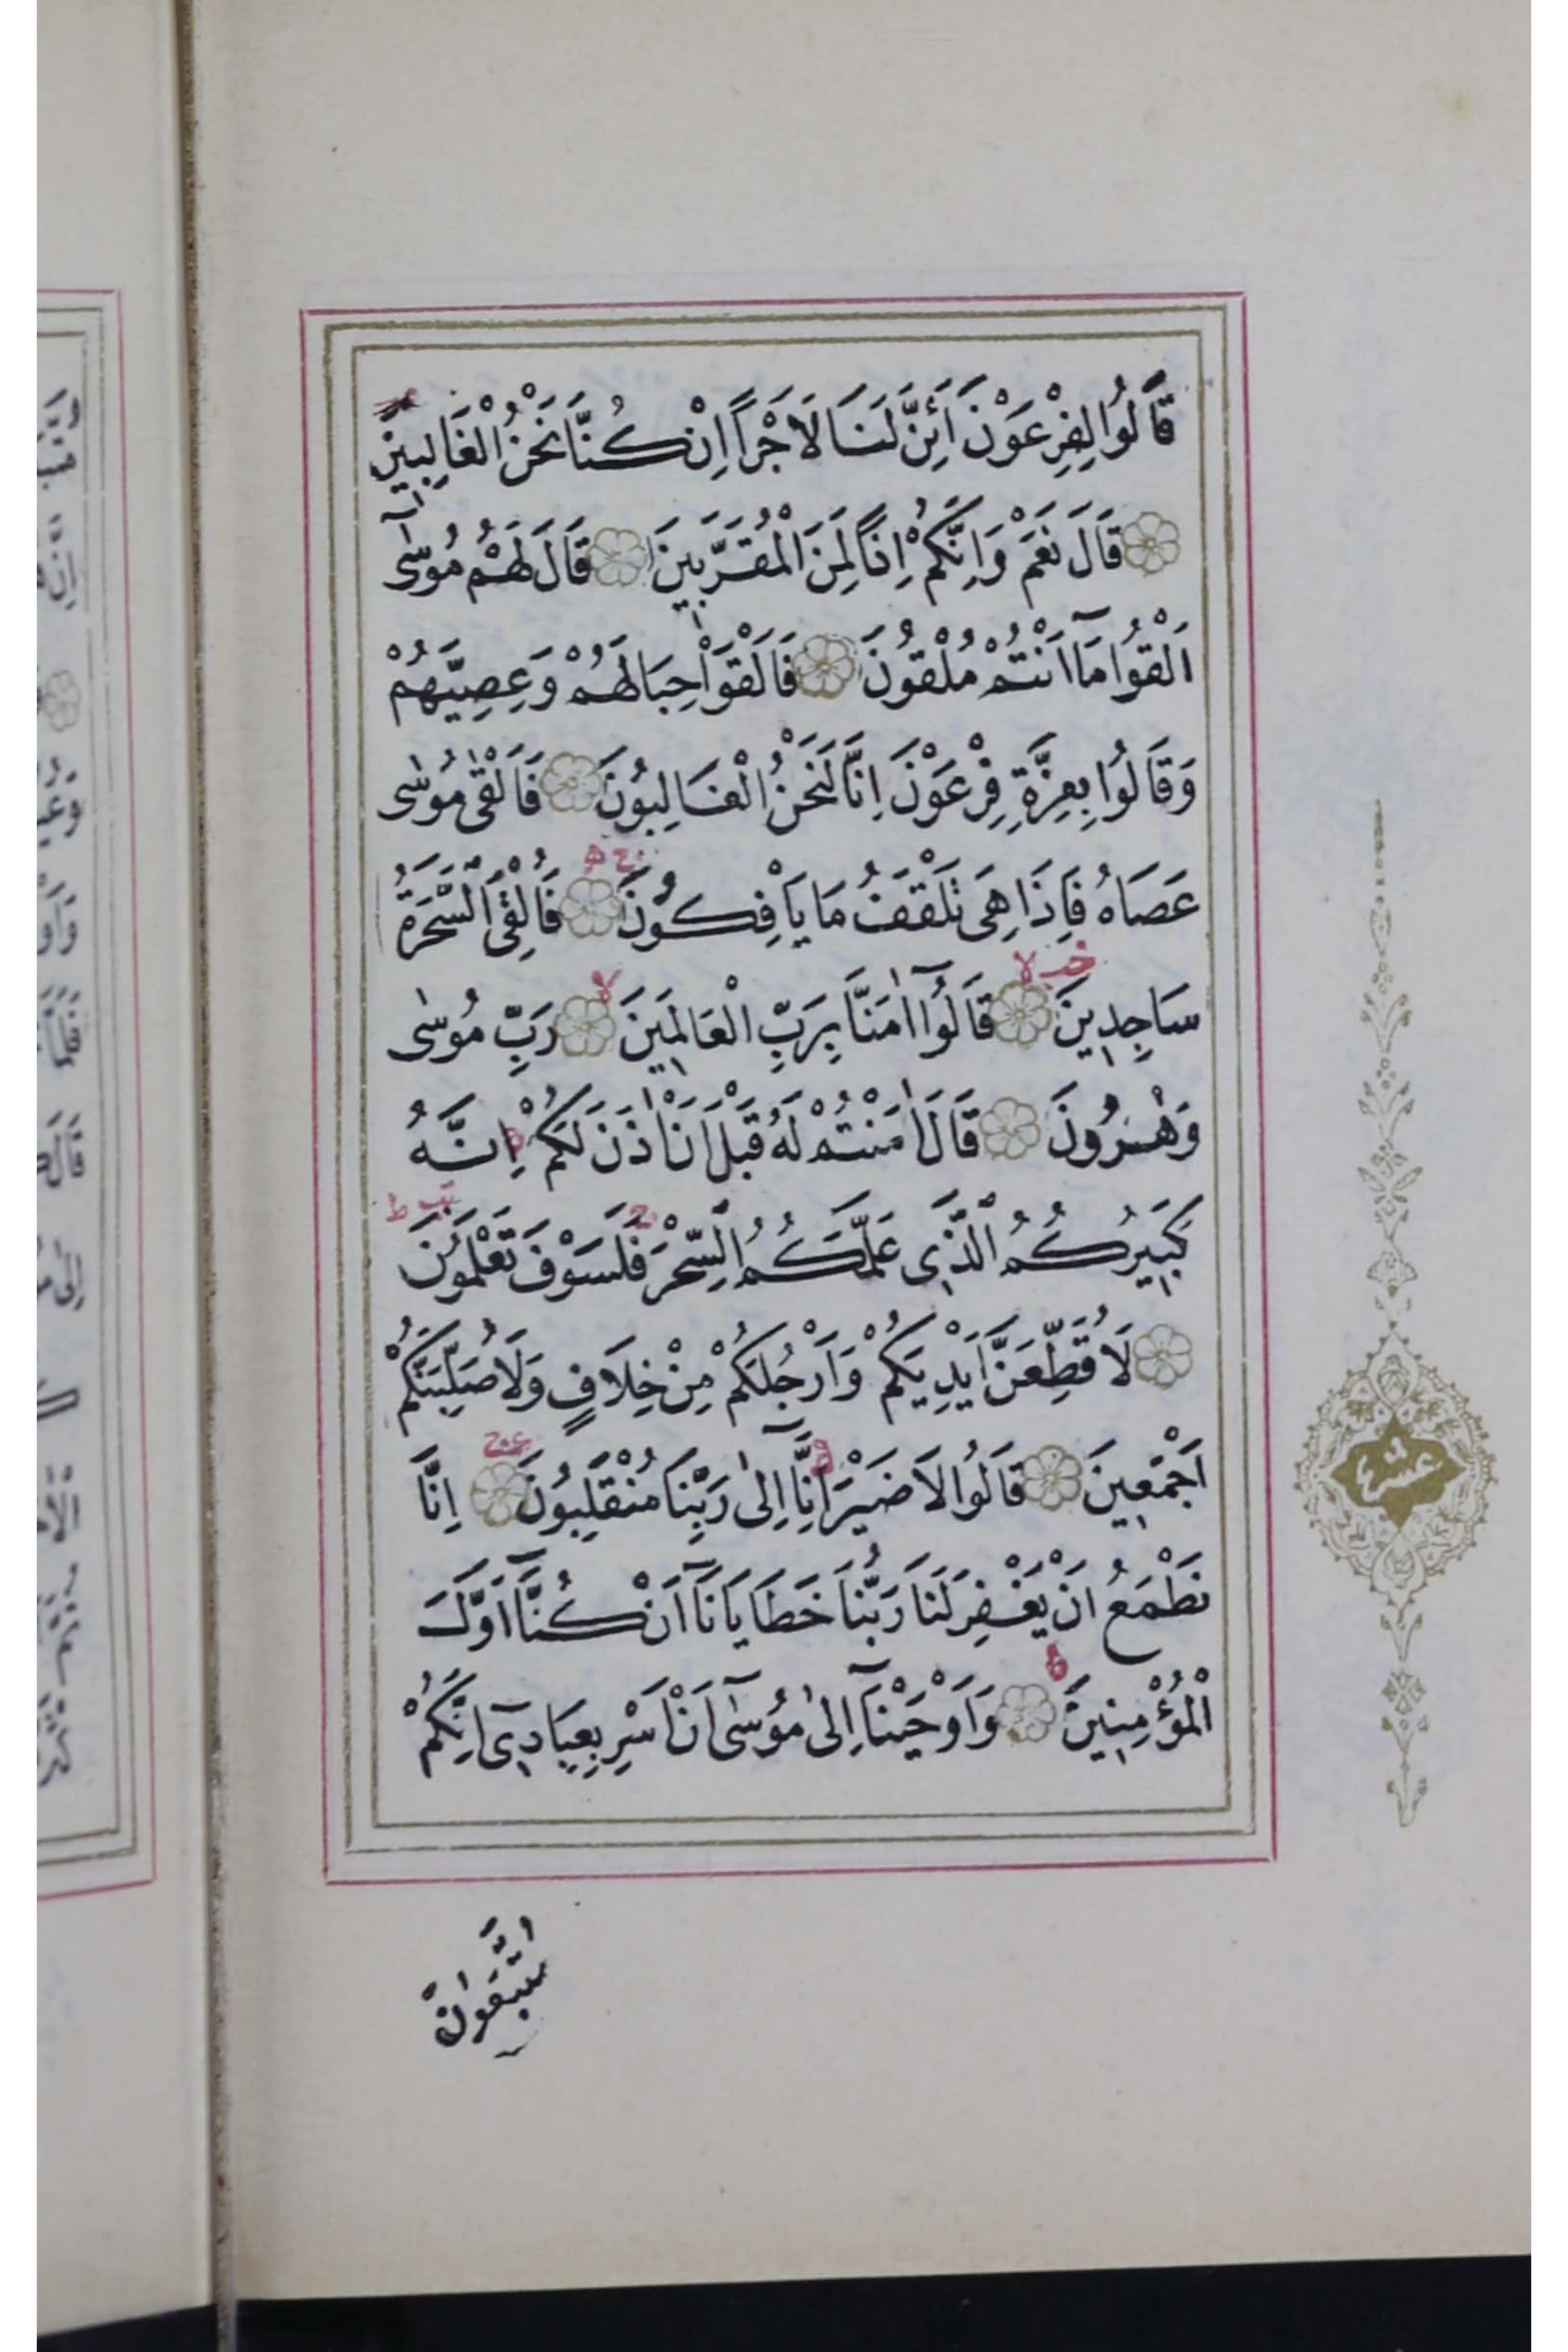 قَالُوا لِفِرْعَوْنَ اَئِنَّ لَنَا لَاَجْرًا اِنْ كُنَّا نَحْنُ الْغَالِبِينَ
قَالَ نَعَمْ وَاِنَّكُمْ اِذًا لَمِنَ الْمُقَرَّبِينَ قَالَ لَهُمْ مُوسٰٓى
اَلْقُوا مَٓا اَنْتُمْ مُلْقُونَ فَاَلْقَوْا حِبَالَهُمْ وَعِصِيَّهُمْ
وَقَالُوا بِعِزَّةِ فِرْعَوْنَ اِنَّا لَنَحْنُ الْغَالِبُونَ فَاَلْقٰى مُوسٰى
عَصَاهُ فَاِذَا هِىَ تَلْقَفُ مَا يَاْفِكُونَ فَاُلْقِىَ السَّحَرَةُ
سَاجِدِينَ قَالُٓوا اٰمَنَّا بِرَبِّ الْعَالَمِينَ رَبِّ مُوسٰى
وَهٰرُونَ قَالَ اٰمَنْتُمْ لَهُ قَبْلَ اَنْ اٰذَنَ لَكُمْ اِنَّهُ
كَبِيرُكُمُ الَّذِى عَلَّمَكُمُ السِّحْرَ فَلَسَوْفَ تَعْلَمُونَ
لَاُقَطِّعَنَّ اَيْدِيَكُمْ وَاَرْجُلَكُمْ مِنْ خِلَافٍ وَلَاُصَلِّبَنَّكُمْ
اَجْمَعِينَ قَالُوا لَا ضَيْرَ اِنَّٓا اِلٰى رَبِّنَا مُنْقَلِبُونَ اِنَّا
نَطْمَعُ اَنْ يَغْفِرَ لَنَا رَبُّنَا خَطَايَانَٓا اَنْ كُنَّٓا اَوَّلَ
الْمُؤْمِنِينَ وَاَوْحَيْنَٓا اِلٰى مُوسٰٓى اَنْ اَسْرِ بِعِبَادِٓى اِنَّكُمْ
عشر